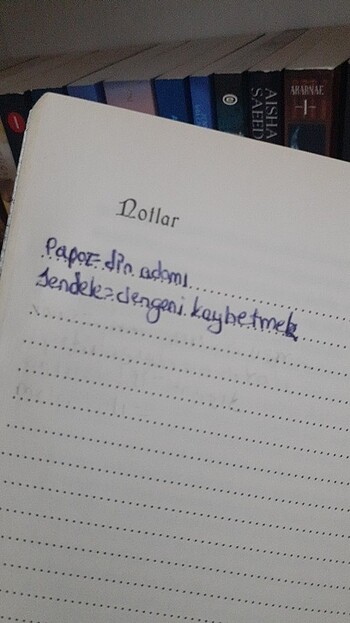 AISHA
SAEED
AKABNAE
Notlar
Papaz=din adamı
Sendele=dengeni kaybetmek